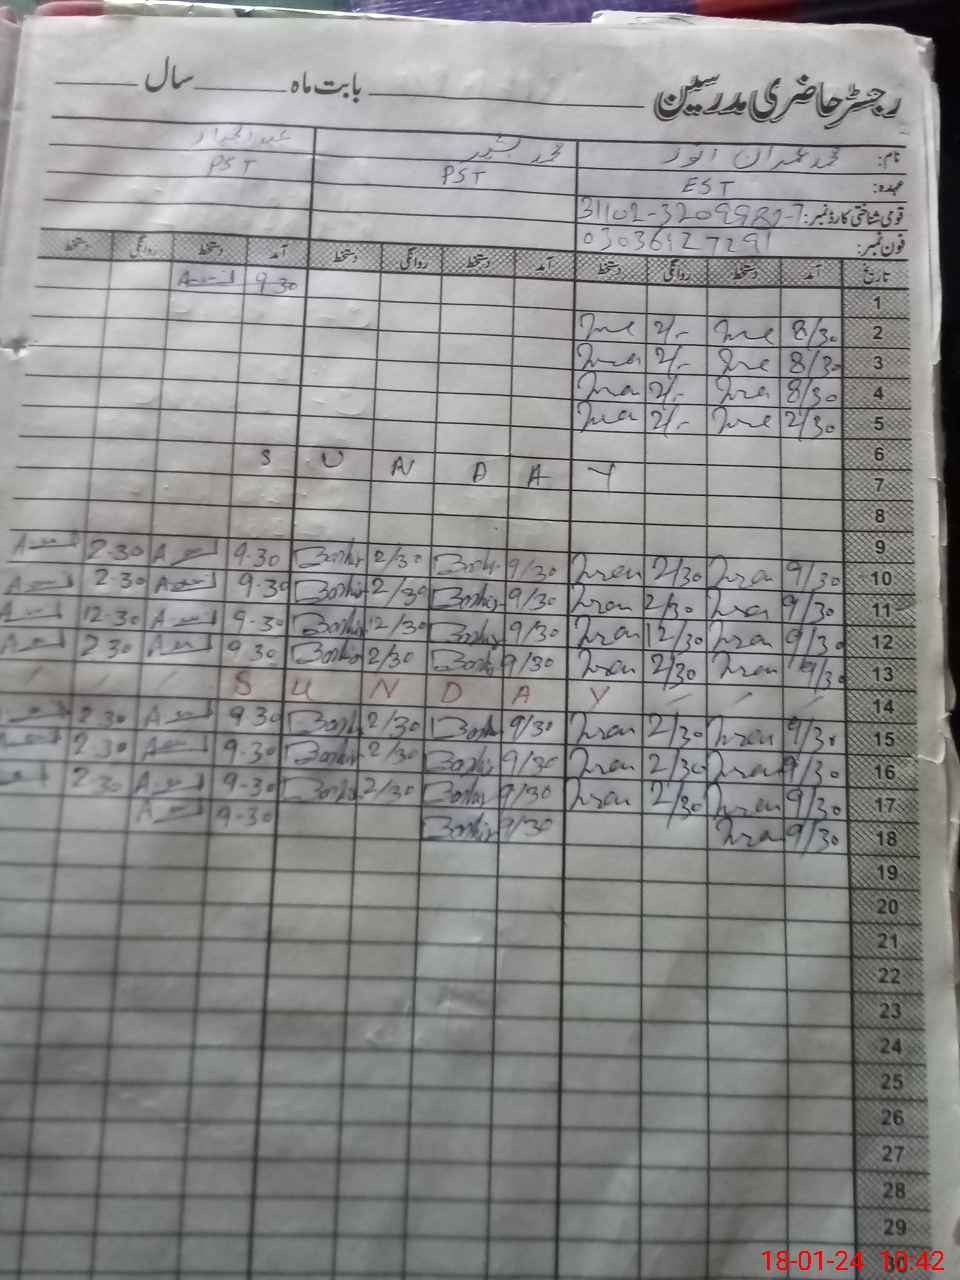 رجسٹر حاضری مدرسین بابت ماہ سال
نام: محمد عمران انور محمد بشیر عبدالجبار
عہدہ: EST PST PST
قومی شناختی کارڈ نمبر:
فون نمبر:
تاریخ آمد دستخط روانگی دستخط آمد دستخط روانگی دستخط آمد دستخط روانگی دستخط
1 9 30
2 8/30 2/-
3 8/30 2/-
4 8/30 2/-
5 2/30 2/-
6
7 S U N D A Y
8
9
10 9/30 Imran 2/30 Imran 9/30 Bashir 2/30 Bashir 9.30 2.30
11 9/30 Imran 2/30 Imran 9/30 Bashir 2/30 Bashir 9.30 2.30
12 9/30 Imran 12/30 Imran 9/30 Bashir 12/30 Bashir 9.30 12.30
13 9/30 Imran 2/30 Imran 9/30 Bashir 2/30 Bashir 9 30 2 30
14 S U N D A Y
15 9/30 Imran 2/30 Imran 9/30 Bashir 2/30 Bashir 9 30 2.30
16 9/30 Imran 2/30 Imran 9/30 Bashir 2/30 Bashir 9.30 2 30
17 9/30 Imran 2/30 Imran 9/30 Bashir 2/30 Bashir 9.30 2 30
18 9/30 Imran 9/30 Bashir 9.30
19
20
21
22
23
24
25
26
27
28
29
30
18-01-24 10:42